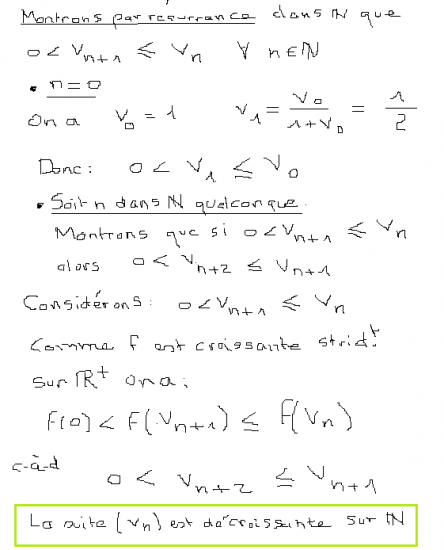 Montrons par recurrance dans ℕ que
0 < V_{n+1} ≤ V_n ∀ n ∈ ℕ
• n = 0
On a V_0 = 1 V_1 = V_0 / (1 + V_0) = 1/2
Donc : 0 < V_1 ≤ V_0
• Soit n dans ℕ quelconque.
Montrons que si 0 < V_{n+1} ≤ V_n
alors 0 < V_{n+2} ≤ V_{n+1}
Considérons : 0 < V_{n+1} ≤ V_n
Comme f est croissante strict^t
sur ℝ^+ on a :
f(0) < f(V_{n+1}) ≤ f(V_n)
c-à-d 0 < V_{n+2} ≤ V_{n+1}
La suite (V_n) est décroissante sur ℕ